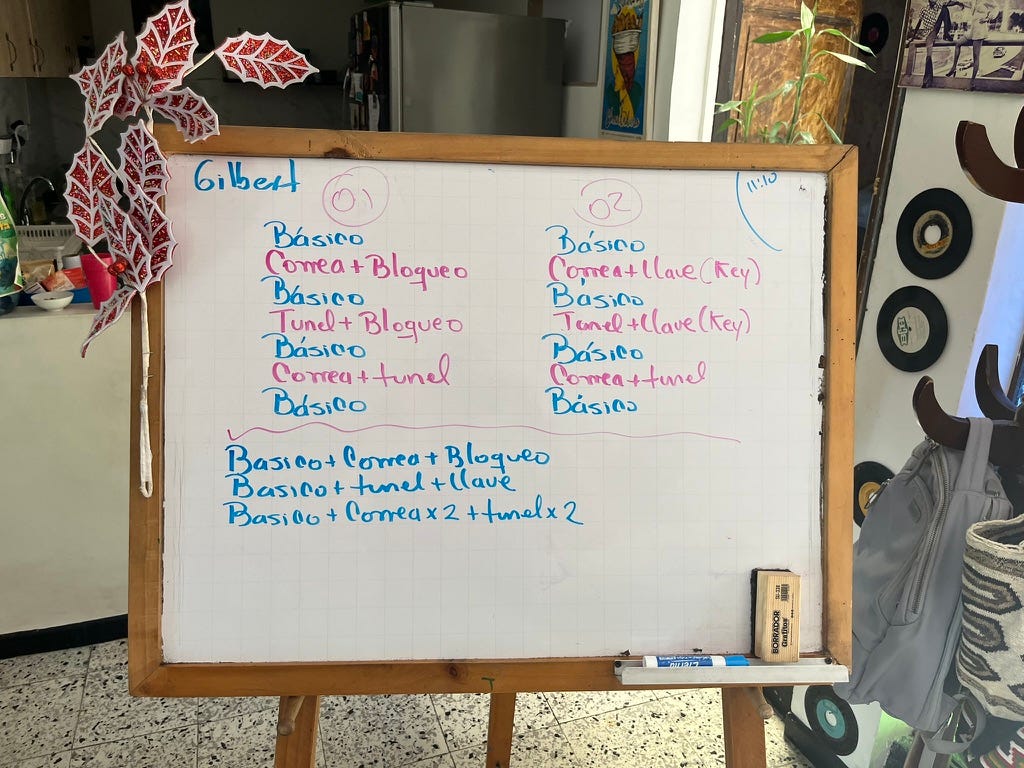 Gilbert
11:10
01
Básico
Correa + Bloqueo
Básico
Tunel + Bloqueo
Básico
Correa + tunel
Básico
02
Básico
Correa + Llave (Key)
Básico
Tunel + Llave (Key)
Básico
Correa + tunel
Básico
Basico + Correa + Bloqueo
Basico + tunel + Llave
Basico + Correa x 2 + tunel x 2
BORRADOR